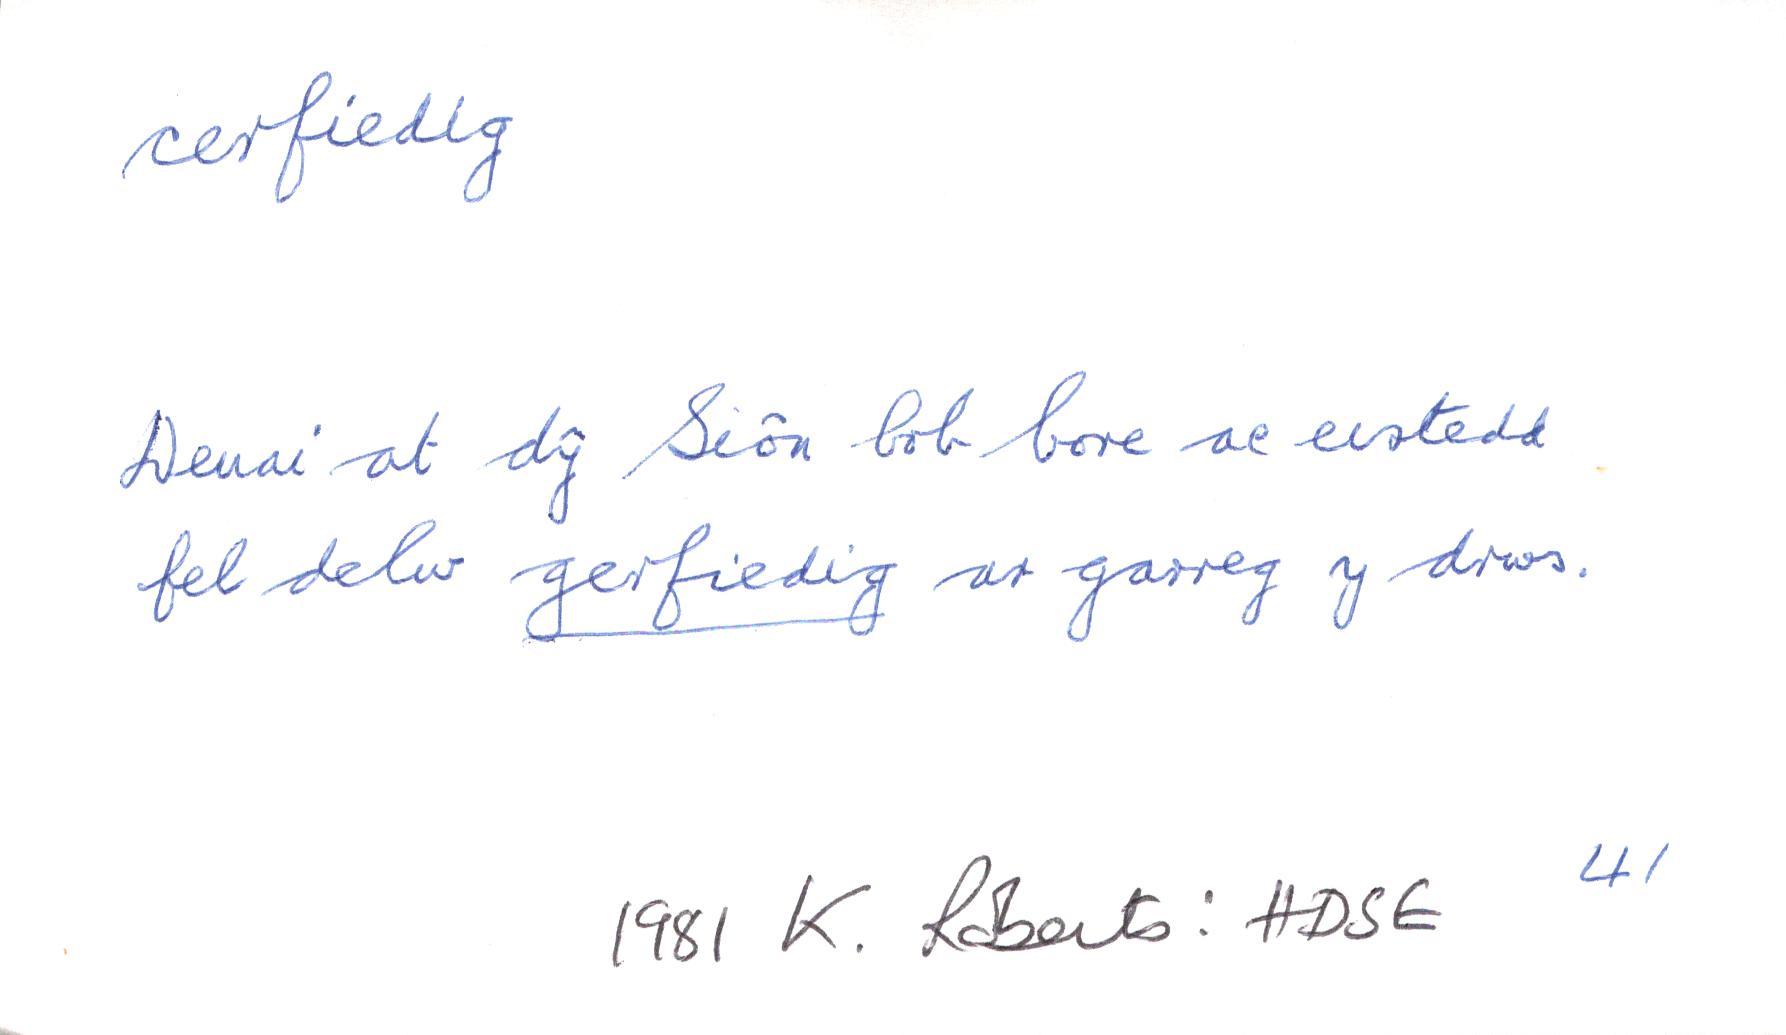 cerfiedig
Deuai at dŷ Siôn bob bore ac eistedd
fel delw gerfiedig ar garreg y drws.
41
1981 K. Roberts: HDSE